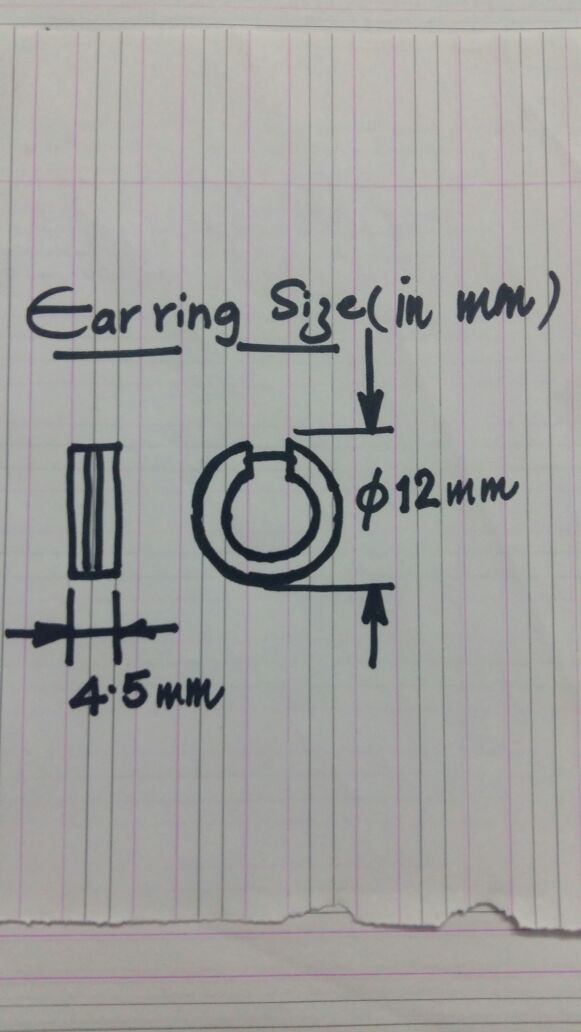 Earring Size (in mm)
ϕ12mm
4.5mm